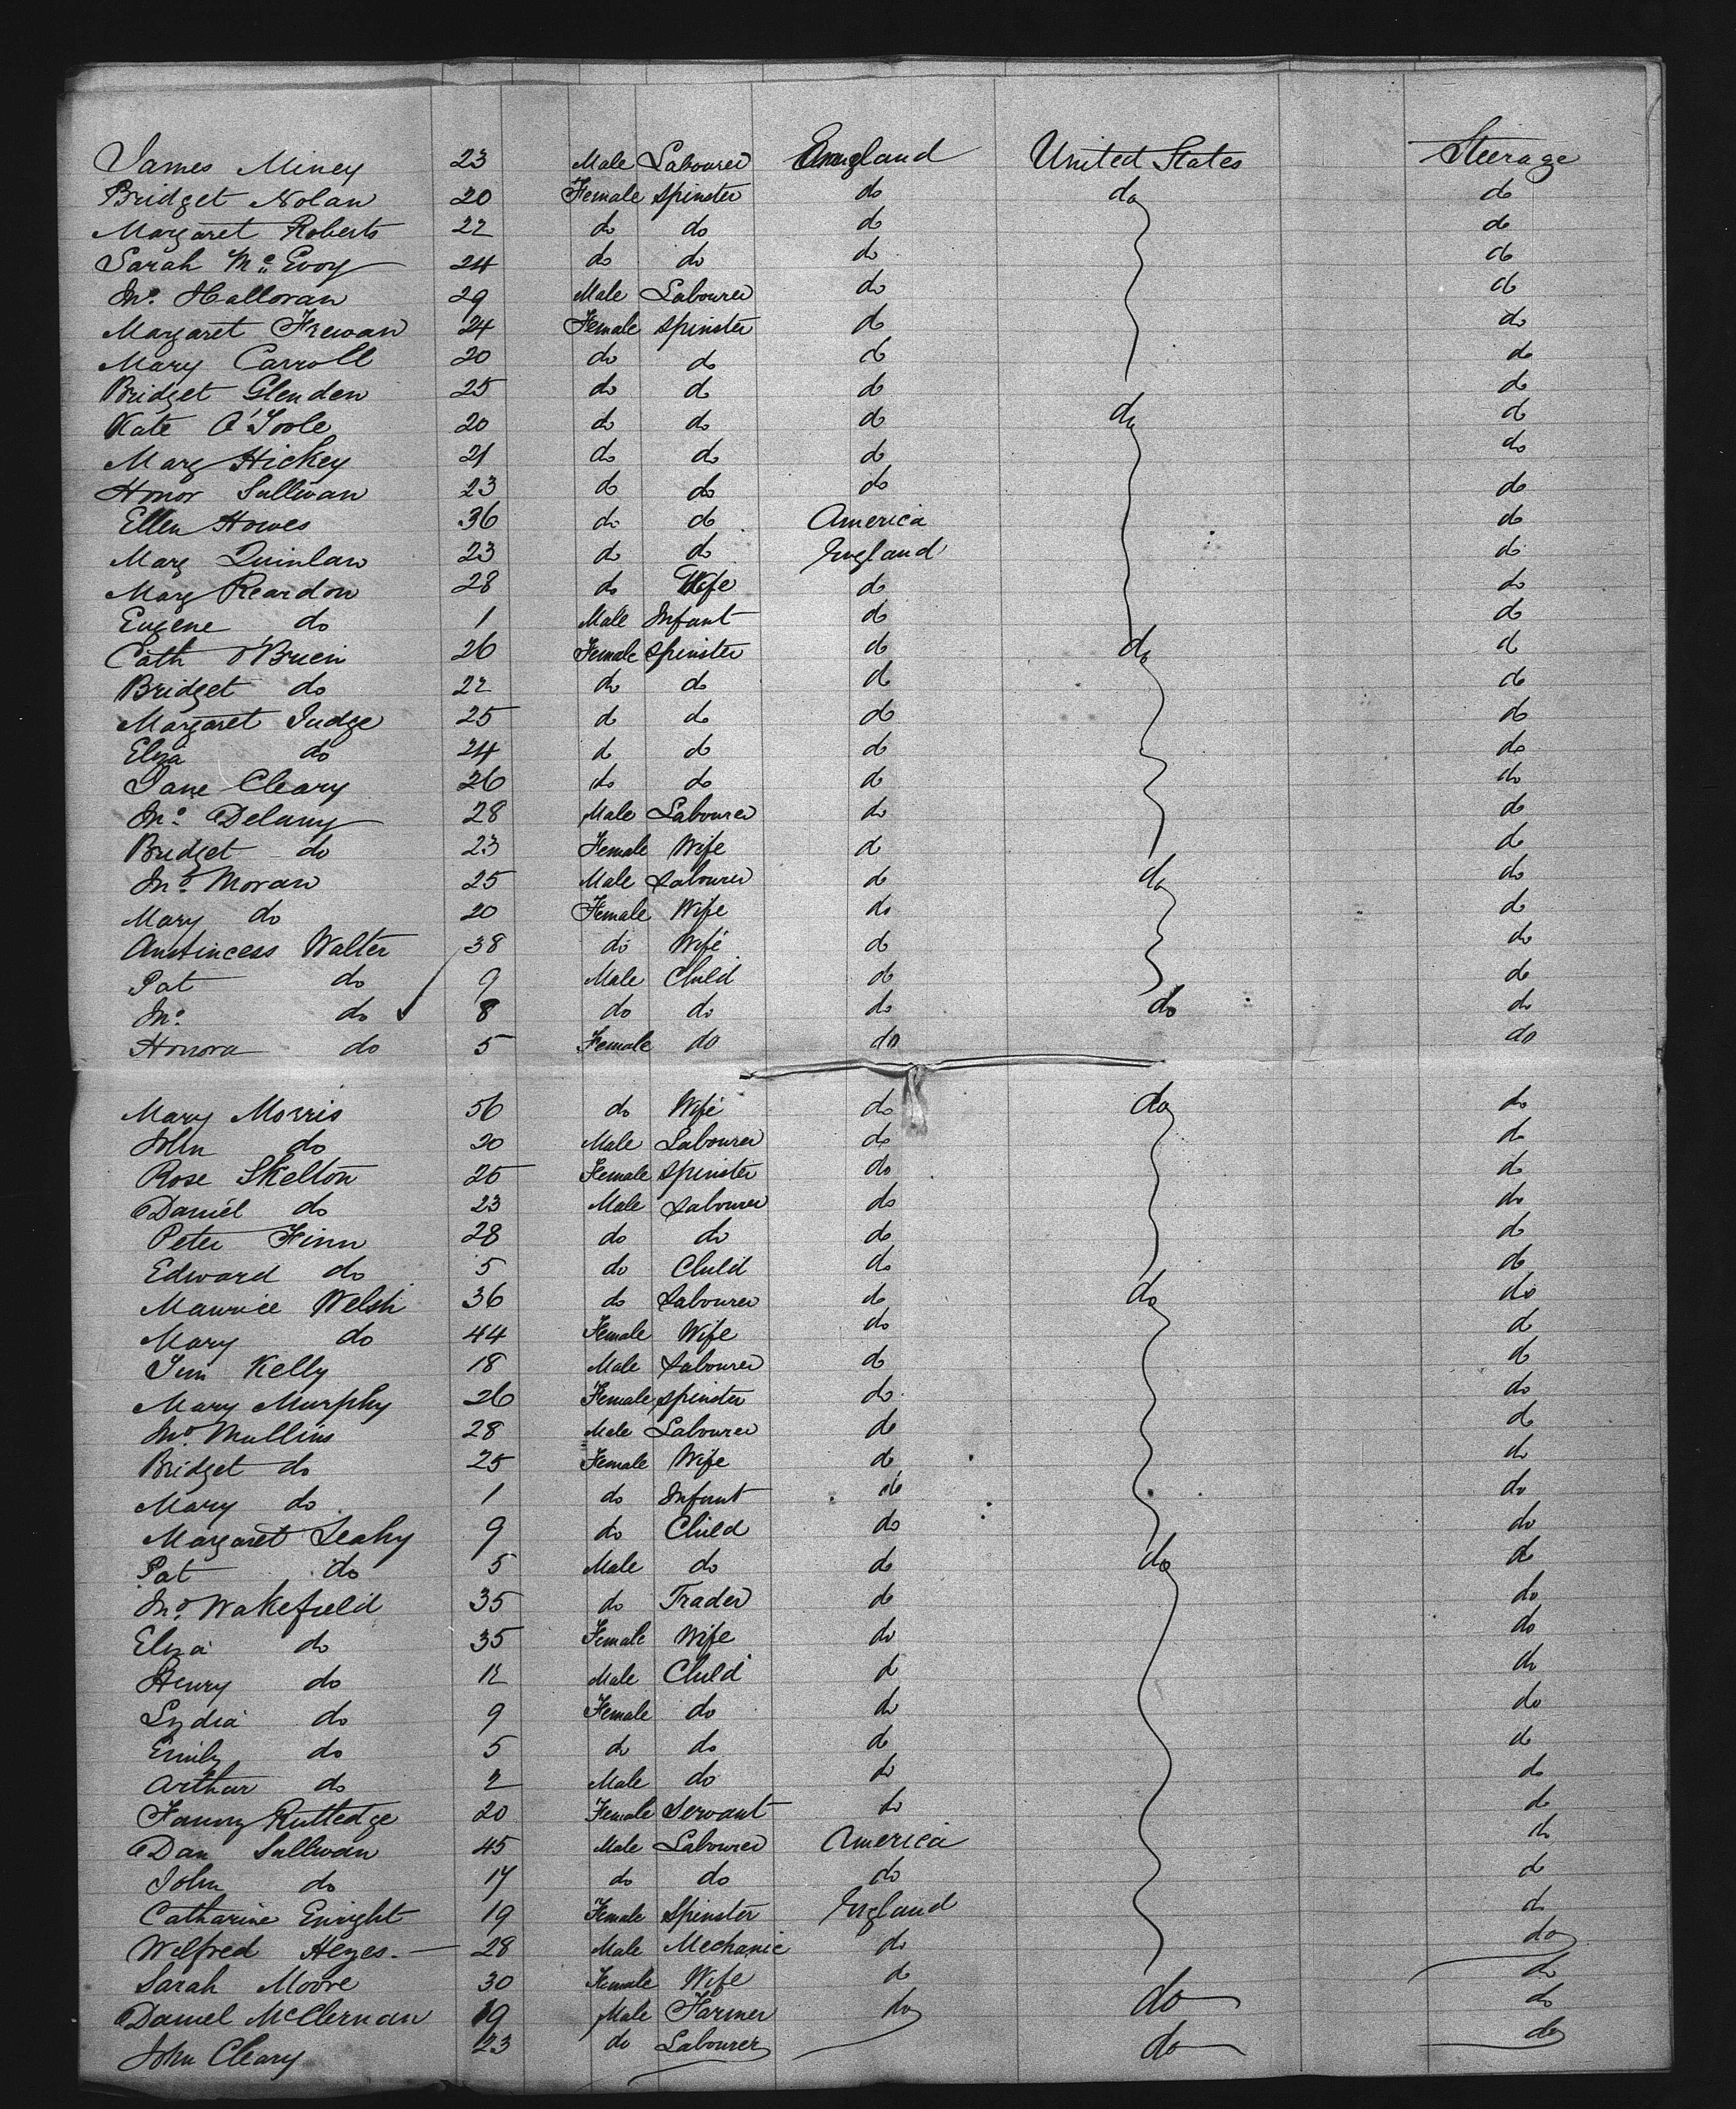 James Miney 23 Male Labourer England United States Steerage
Bridget Nolan 20 Female Spinster do do do
Margaret Roberts 22 do do do do
Sarah McEvoy 24 do do do do
Jno. Halloran 29 Male Labourer do do
Margaret Frewan 24 Female Spinster do do
Mary Carroll 20 do do do do
Bridget Glenden 25 do do do do
Kate O'Toole 20 do do do do do
Mary Hickey 21 do do do do
Honor Sullivan 23 do do do do
Ellen Howes 36 do do America do
Mary Quinlan 23 do do England do
Mary Reardon 28 do Wife do do
Eugene do 1 Male Infant do do
Cath O'Brien 26 Female Spinster do do do
Bridget do 22 do do do do
Margaret Judge 25 do do do do
Eliza do 24 do do do do
Jane Cleary 26 do do do do
Jno. Delany 28 Male Labourer do do
Bridget do 23 Female Wife do do
Jno. Moran 25 Male Labourer do do do
Mary do 20 Female Wife do do
Walter 38 do Wife do do
Pat do 9 Male Child do do
Jno. do 8 do do do do do
Honora do 5 Female do do do
Mary Morris 56 do Wife do do do
John do 20 Male Labourer do do
Rose Skelton 25 Female Spinster do do
Daniel do 23 Male Labourer do do
Peter Finn 28 do do do do
Edward do 5 do Child do do
Maurice Welsh 36 do Labourer do do do
Mary do 44 Female Wife do do
Jim Kelly 18 Male Labourer do do
Mary Murphy 26 Female Spinster do do
Jno. Mullins 28 Male Labourer do do
Bridget do 25 Female Wife do do
Mary do 1 do Infant do do
Margaret Leahy 9 do Child do do
Pat do 5 Male do do do do
Jno. Wakefield 35 do Trader do do
Eliza do 35 Female Wife do do
Henry do 12 Male Child do do
Lydia do 9 Female do do do
Emily do 5 do do do do
Arthur do 2 Male do do do
Fanny Rutledge 20 Female Servant do do
Dan Sullivan 45 Male Labourer America do
John do 17 do do do do
Catharine Enright 19 Female Spinster England do
Wilfred Heyes 28 Male Mechanic do do
Sarah Moore 30 Female Wife do do
Daniel McClernan 19 Male Farmer do do do
John Cleary 23 do Labourer do do